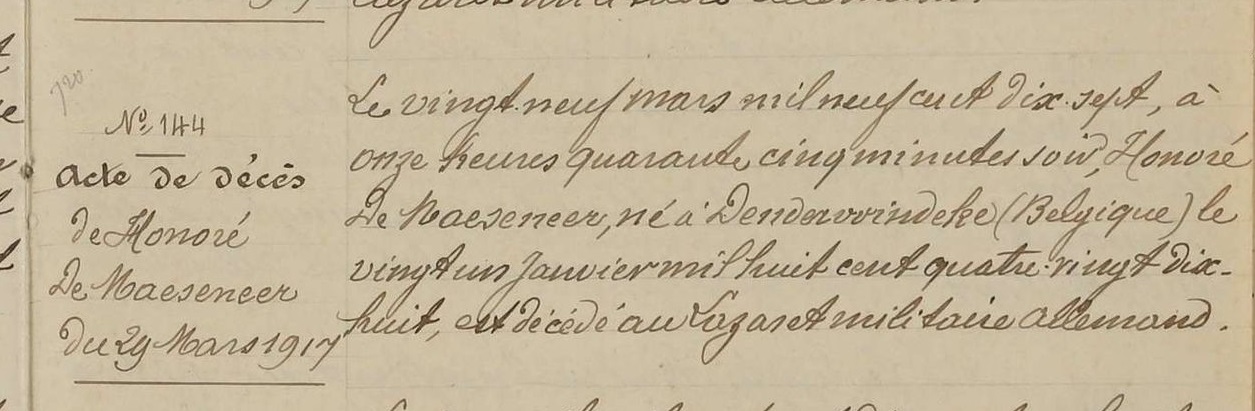 720
Nº 144
Acte de décès
de Honoré
De Maeseneer
du 29 Mars 1917
Le vingt-neuf mars mil neuf cent dix-sept, à
onze heures quarante cinq minutes soir, Honoré
De Maeseneer, né à Denderwindeke (Belgique) le
vingt un Janvier mil huit cent quatre-vingt dix-
huit, est décédé au Lazaret militaire allemand.